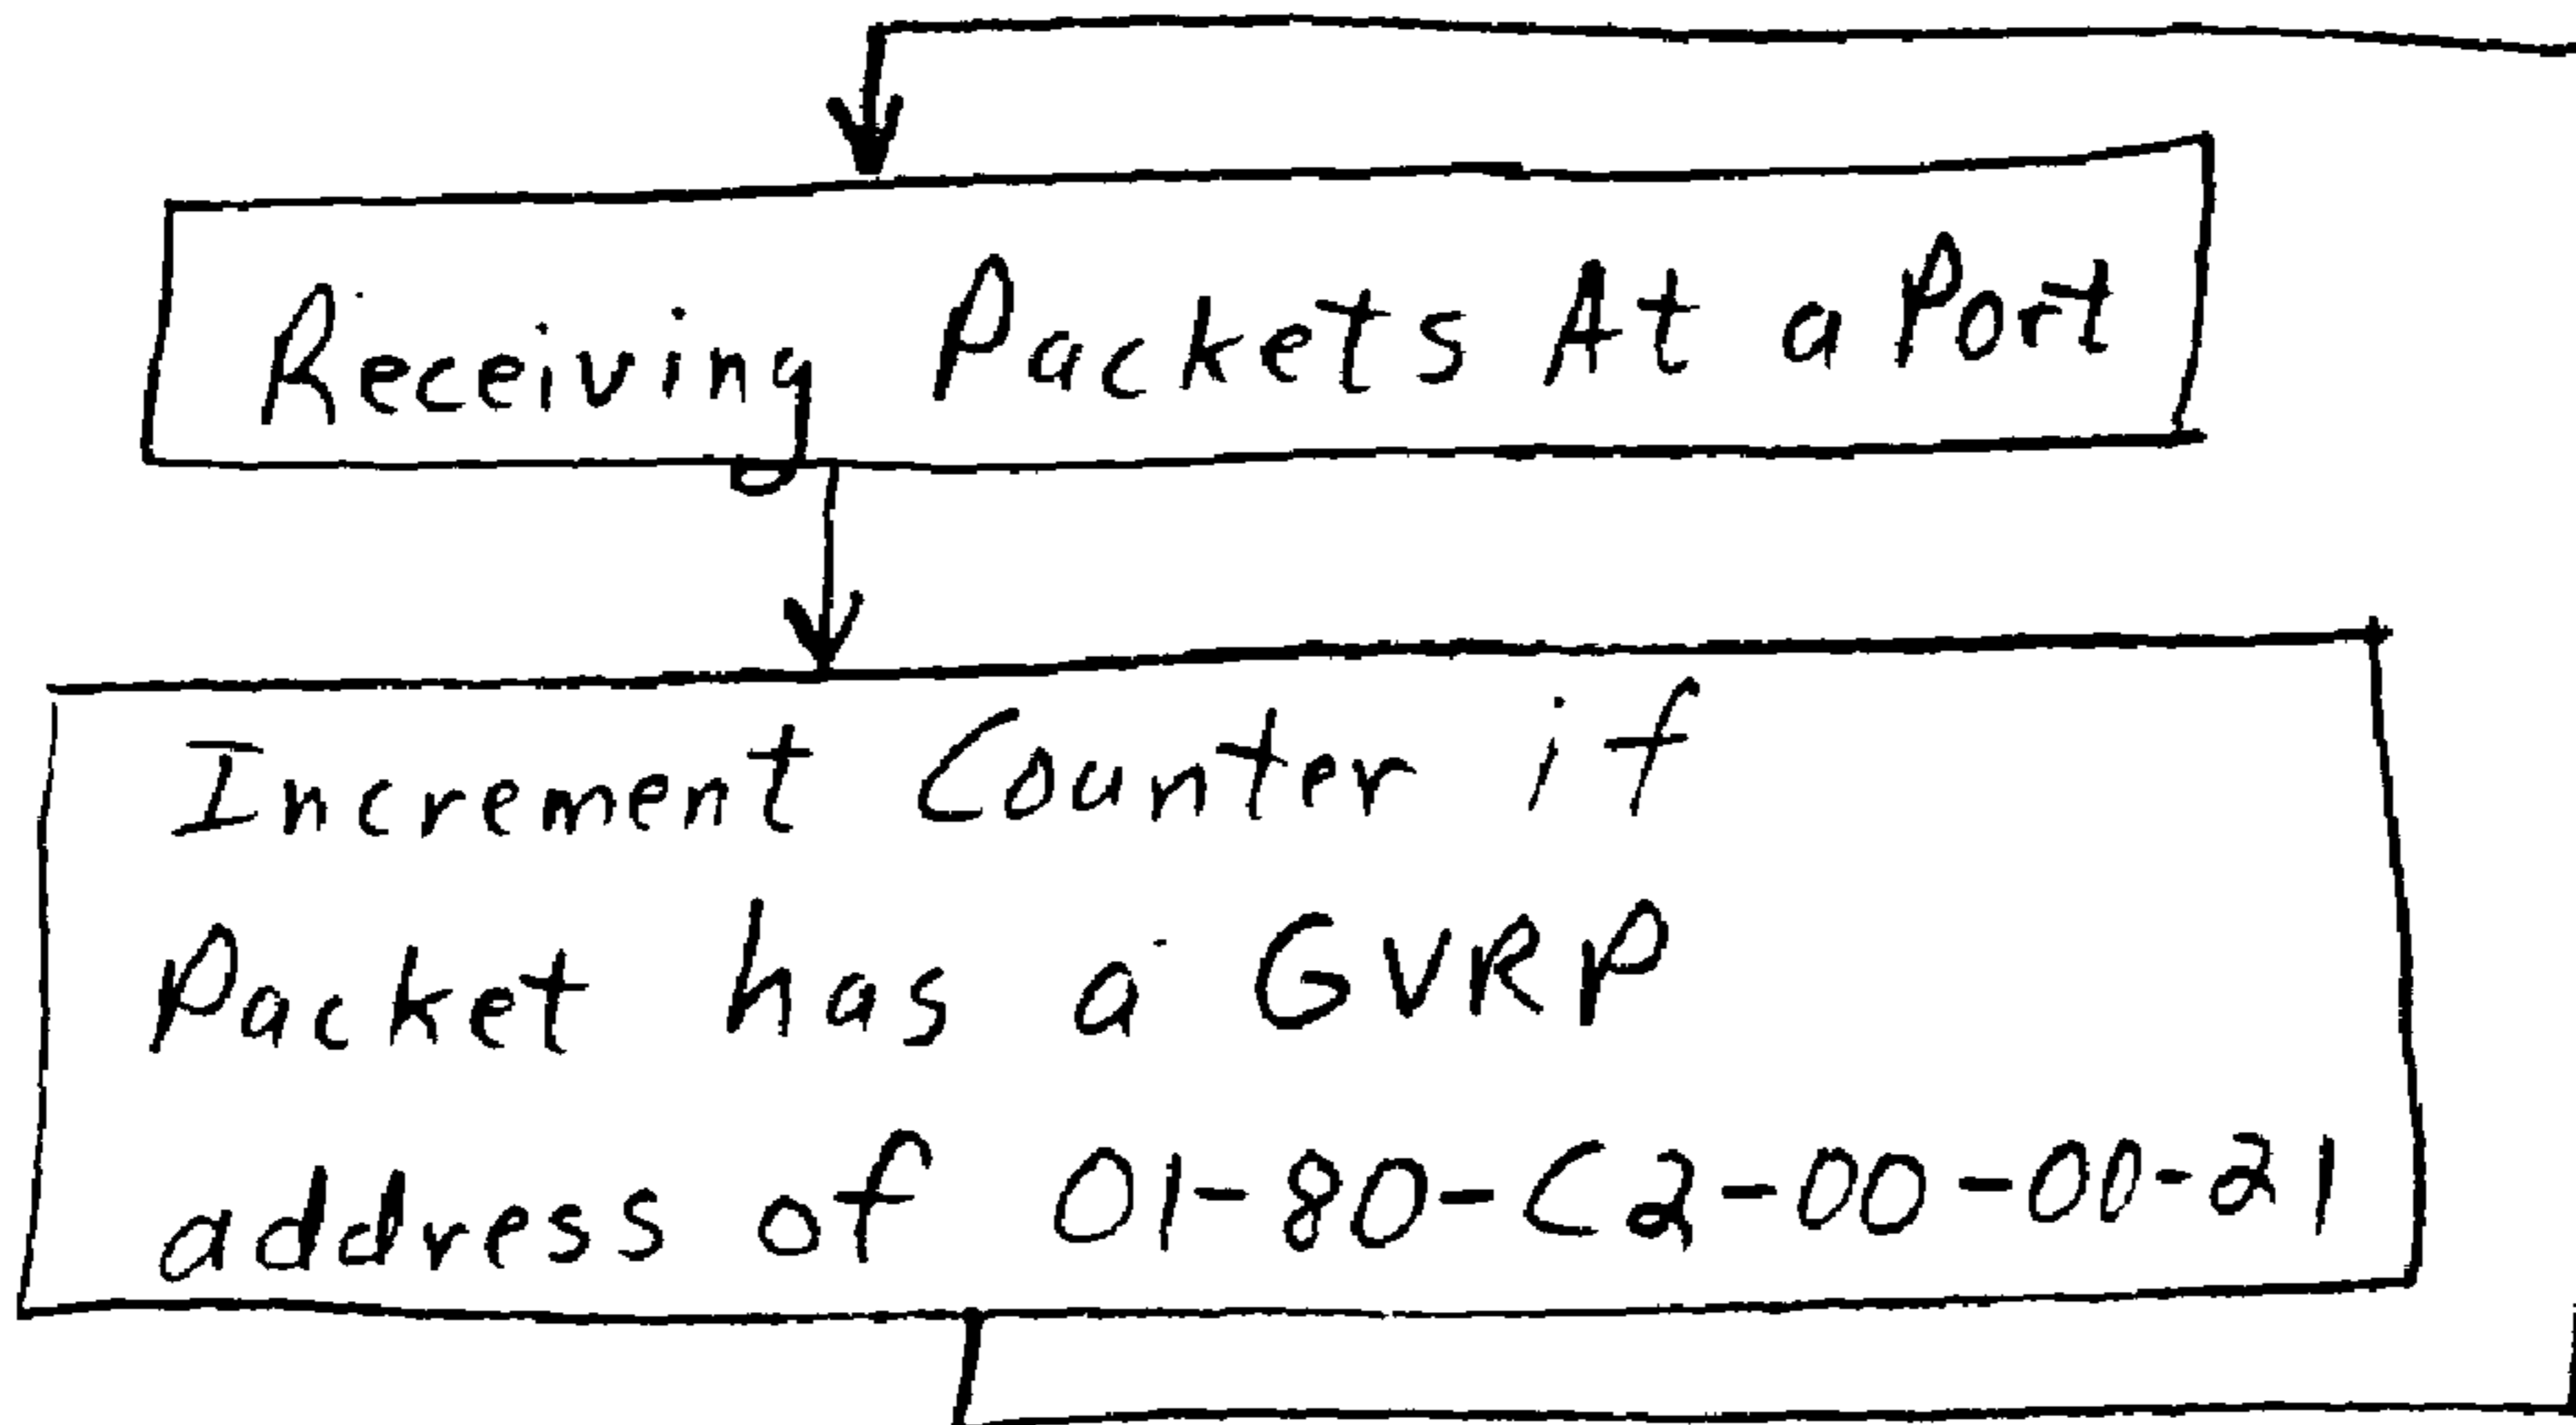 Receiving Packets At a Port
Increment Counter if
Packet has a GVRP
address of 01-80-C2-00-00-21